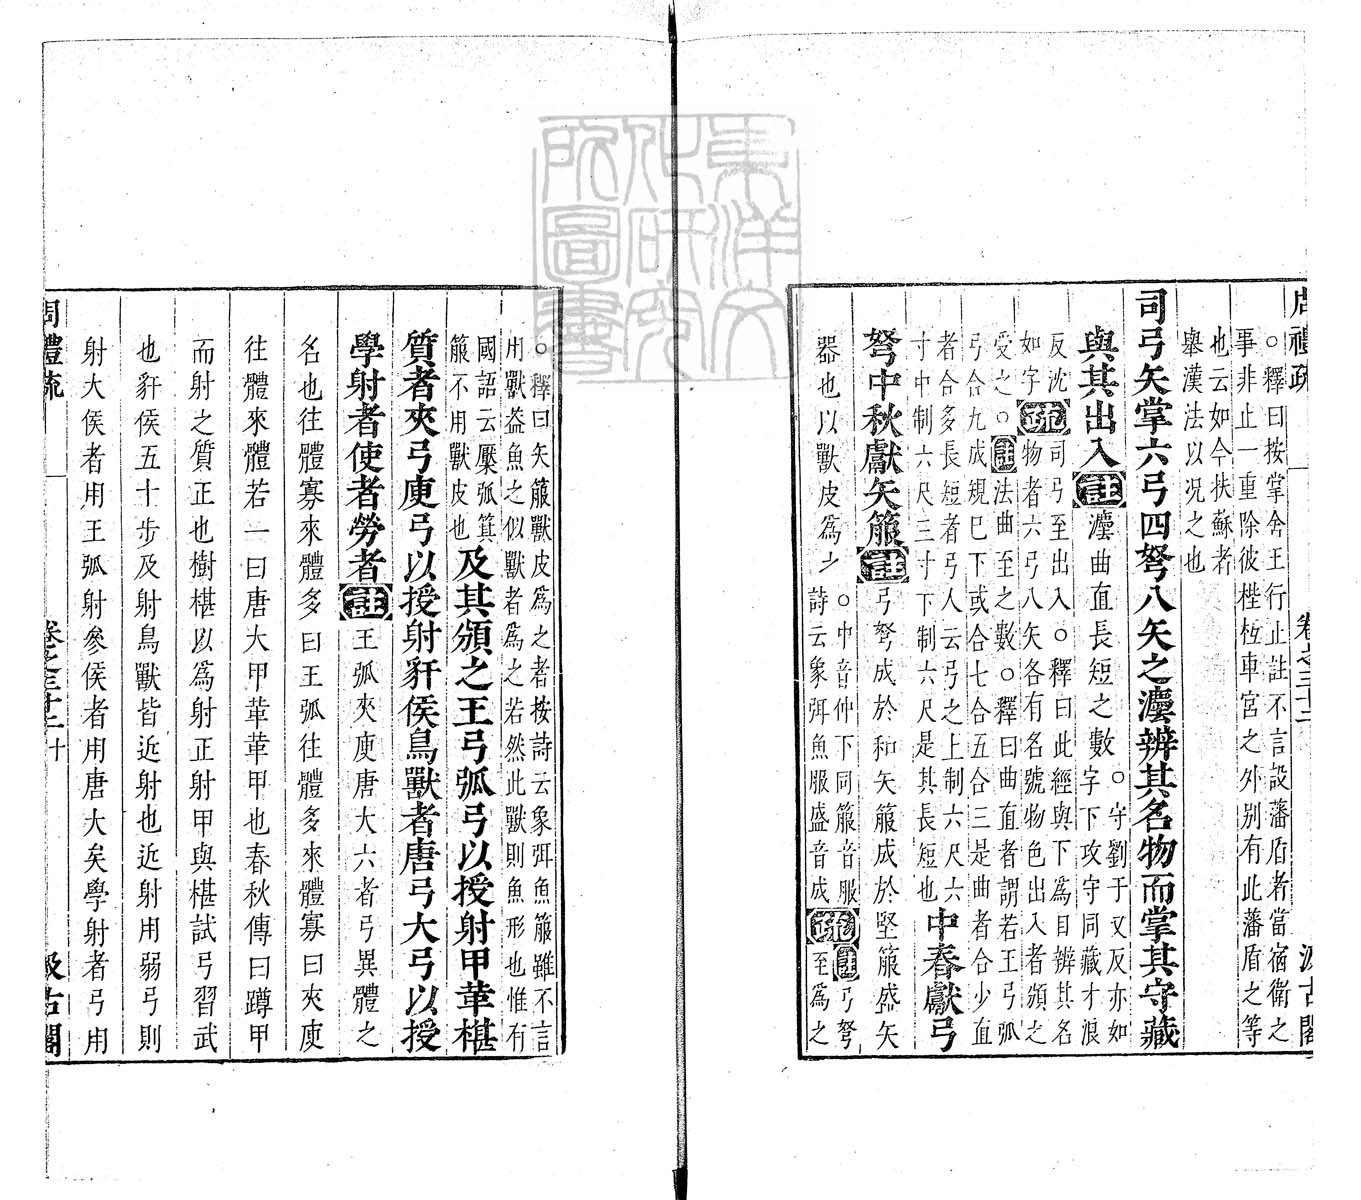 周禮疏
卷之三十二
汲古閣
○釋曰按掌舍王行止註不言設藩盾者當宿衛之
事非止一重除彼梐枑車宮之外别有此藩盾之等
也云如今扶蘇者
舉漢法以况之也
司弓矢掌六弓四弩八矢之灋辨其名物而掌其守藏
與其出入註灋曲直長短之數○守劉于又反亦如
字下攻守同藏才浪
反沈
如字疏司弓至出入○釋曰此經與下為目辨其名
物者六弓八矢各有名號物色出入者頒之
受之○註法曲至之數○釋曰曲直者謂若王弓弧
弓合九成規巳下或合七合五合三是曲者合少直
者合多長短者弓人云弓之上制六尺六
寸中制六尺三寸下制六尺是其長短也中春獻弓
弩中秋獻矢箙註弓弩成於和矢箙成於堅箙盛矢
器也以獸皮為之○中音仲下同箙音服
詩云象弭魚服盛音成疏註弓弩
至為之
○釋曰矢箙獸皮為之者按詩云象弭魚箙雖不言
用獸葢魚之似獸者為之若然此獸則魚形也惟有
國語云檿弧箕
箙不用獸皮也及其頒之王弓弧弓以授射甲革椹
質者夾弓庾弓以授射豻侯鳥獸者唐弓大弓以授
學射者使者勞者註王弧夾庾唐大六者弓異體之
名也往體寡來體多曰王弧往體多來體寡曰夾庾
往體來體若一曰唐大甲革革甲也春秋傳曰蹲甲
而射之質正也樹椹以為射正射甲與椹試弓習武
也豻侯五十步及射鳥獸皆近射也近射用弱弓則
射大侯者用王弧射參侯者用唐大矣學射者弓用
周禮疏
卷之三十二
十
汲古閣
東洋文化研究所圖書